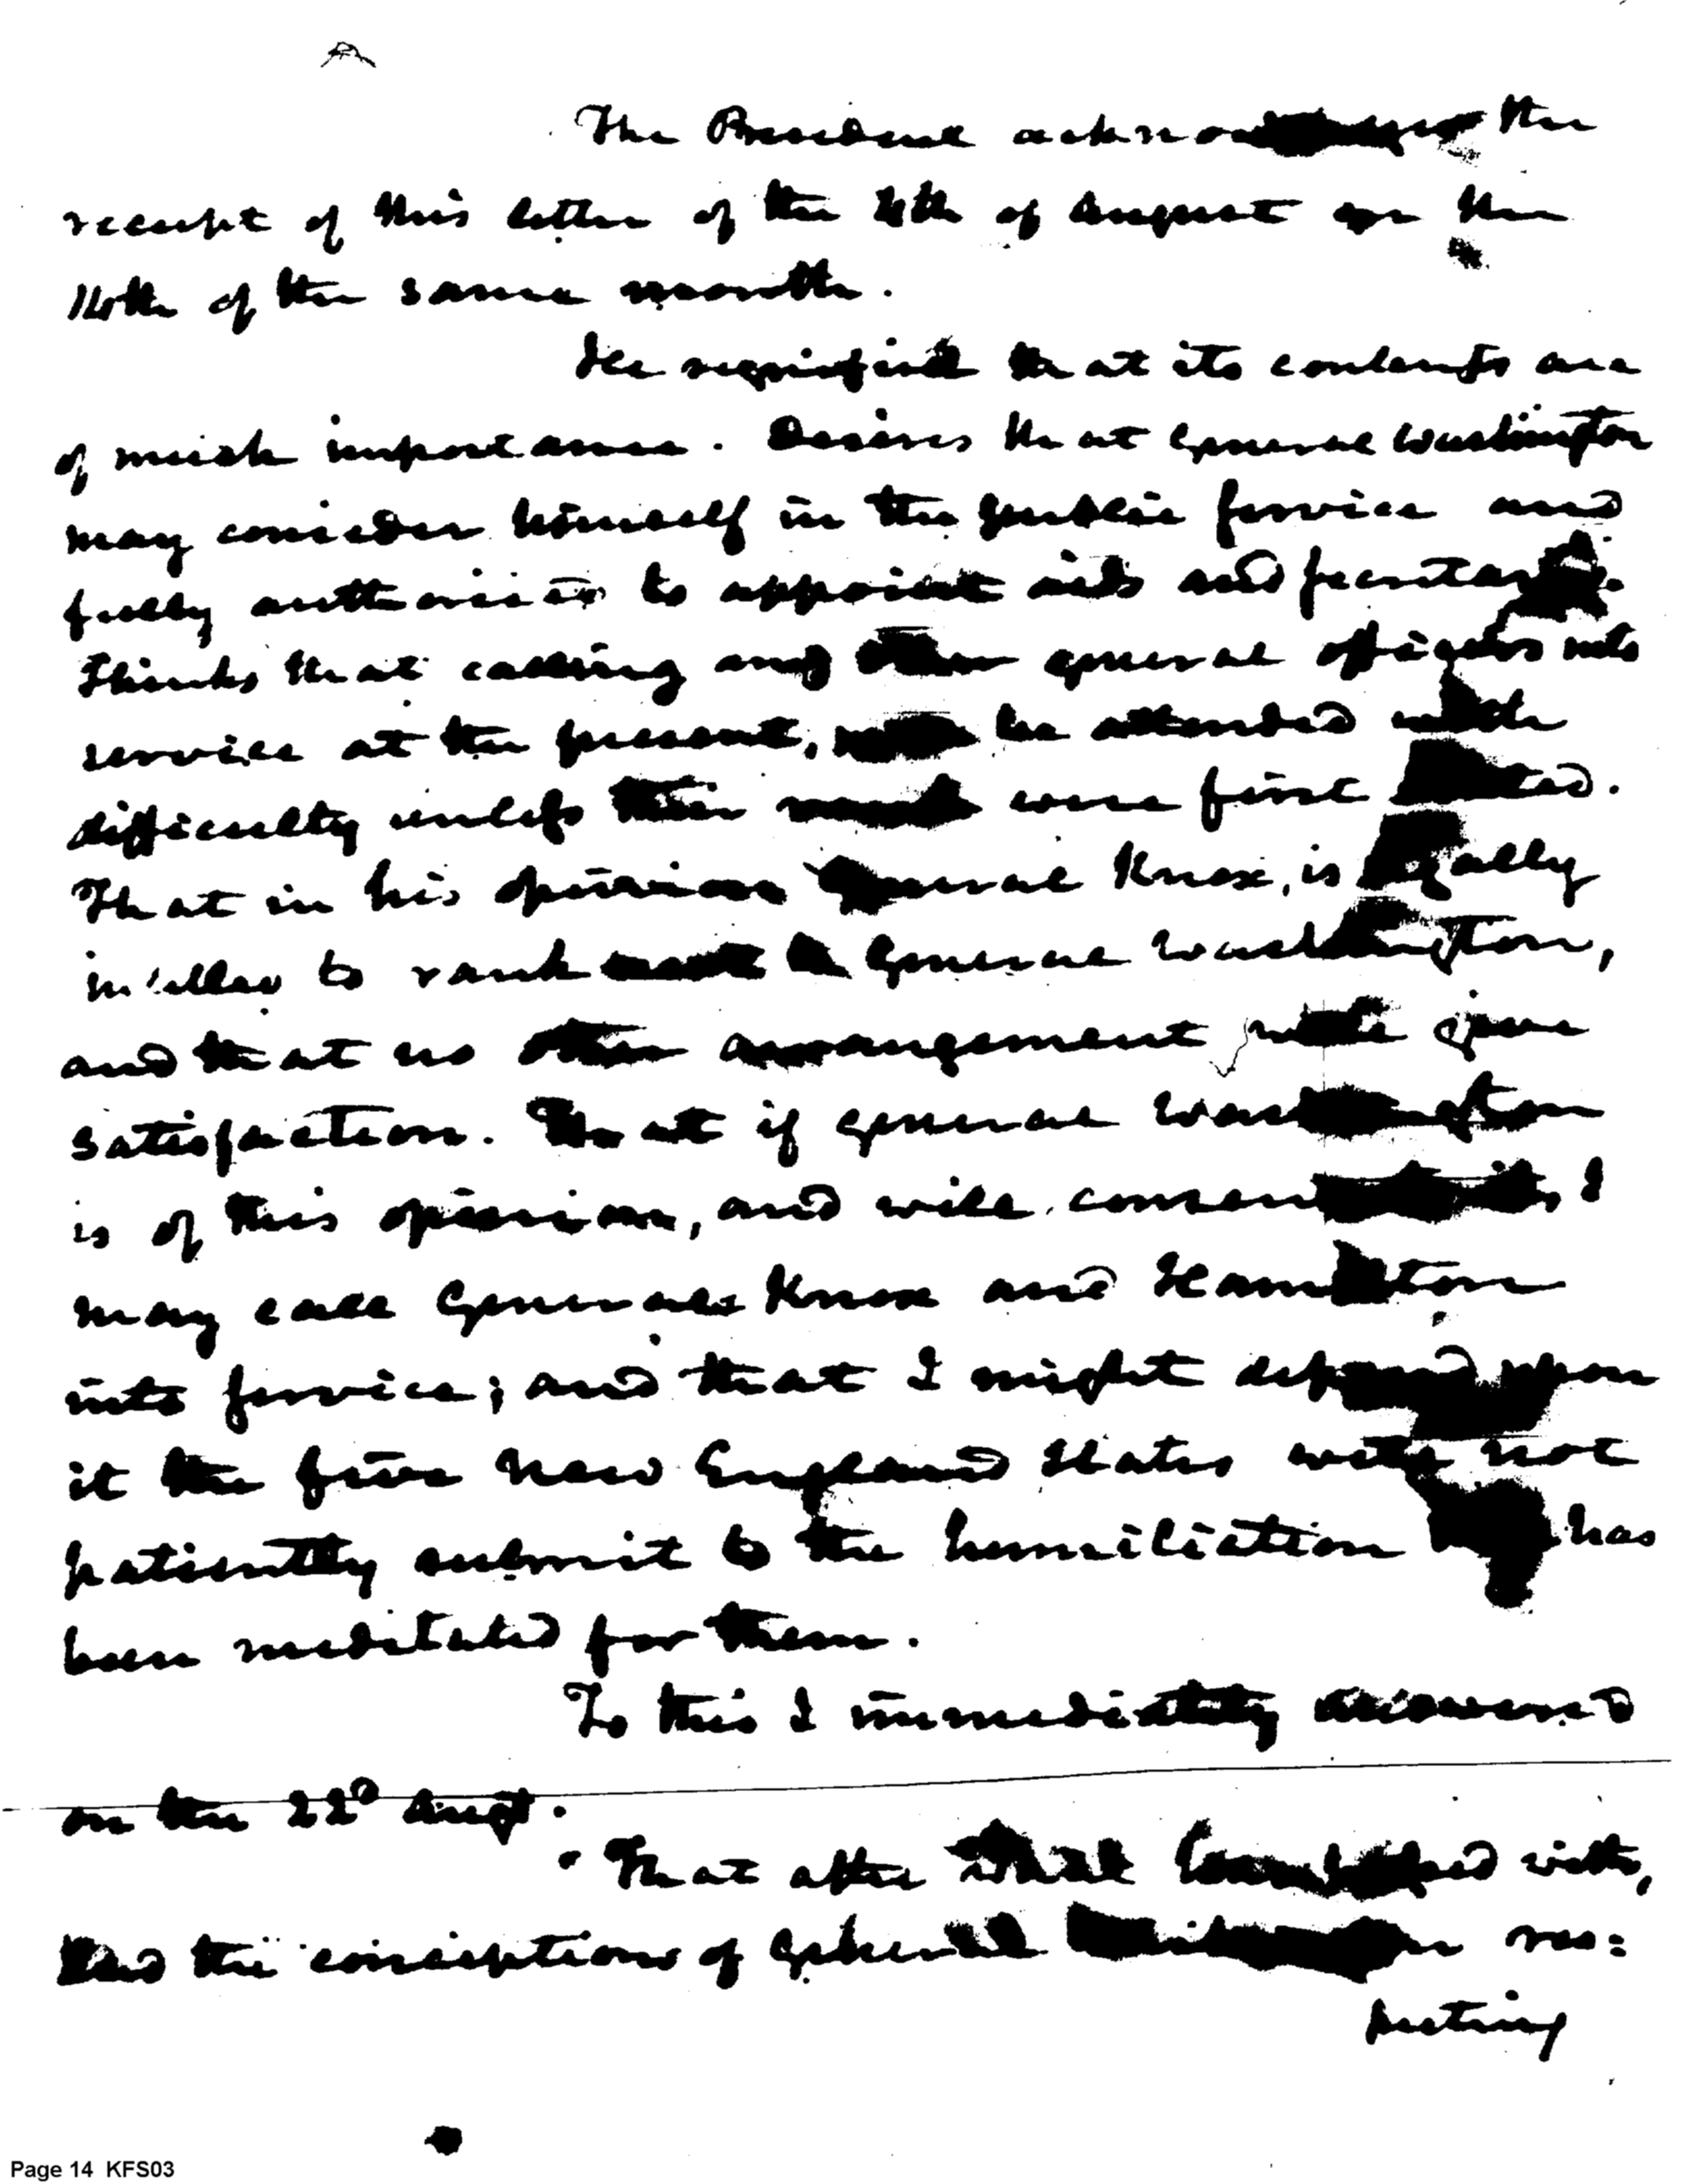 The President acknowledges the
receipt of this letter of the 4th of August on the
14th of the same month.
He signified that its contents are
of much importance. Desires that General Washington
may consider himself in the public service and
fully authorised to appoint aids and secretaries.
Thinks that calling any other general officers into
service at the present, will be attended with
difficulty unless their rank were first settled.
That in his opinion General Knox, is legally
intitled to rank next to General Washington,
and that no other arrangement will give
satisfaction. That if General Washington
is of this opinion, and will consent to it, I
may call Generals Knox and Hamilton
into service; and that I might depend upon
it the five New England States will not
patiently submit to the humiliation that has
been meditated for them.
To this I immediately answered
on the 22d Augt.
That after what had passed with,
the conceptions of General Washington res:
pecting
Page 14 KFS03